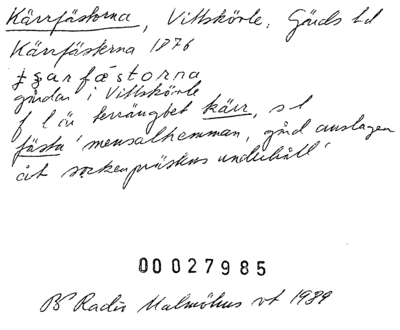 Kärrfästorna, Vittskövle, Gärds hd
Kärrfästerna 1876
ɟʒarfæstorna
gårdar i Vittskövle
f l är terrängbet kärr, s l
fästa 'mensalhemman, gård anslagen
åt sockenprästens underhåll'
00027985
BP Radio Malmöhus vt 1989